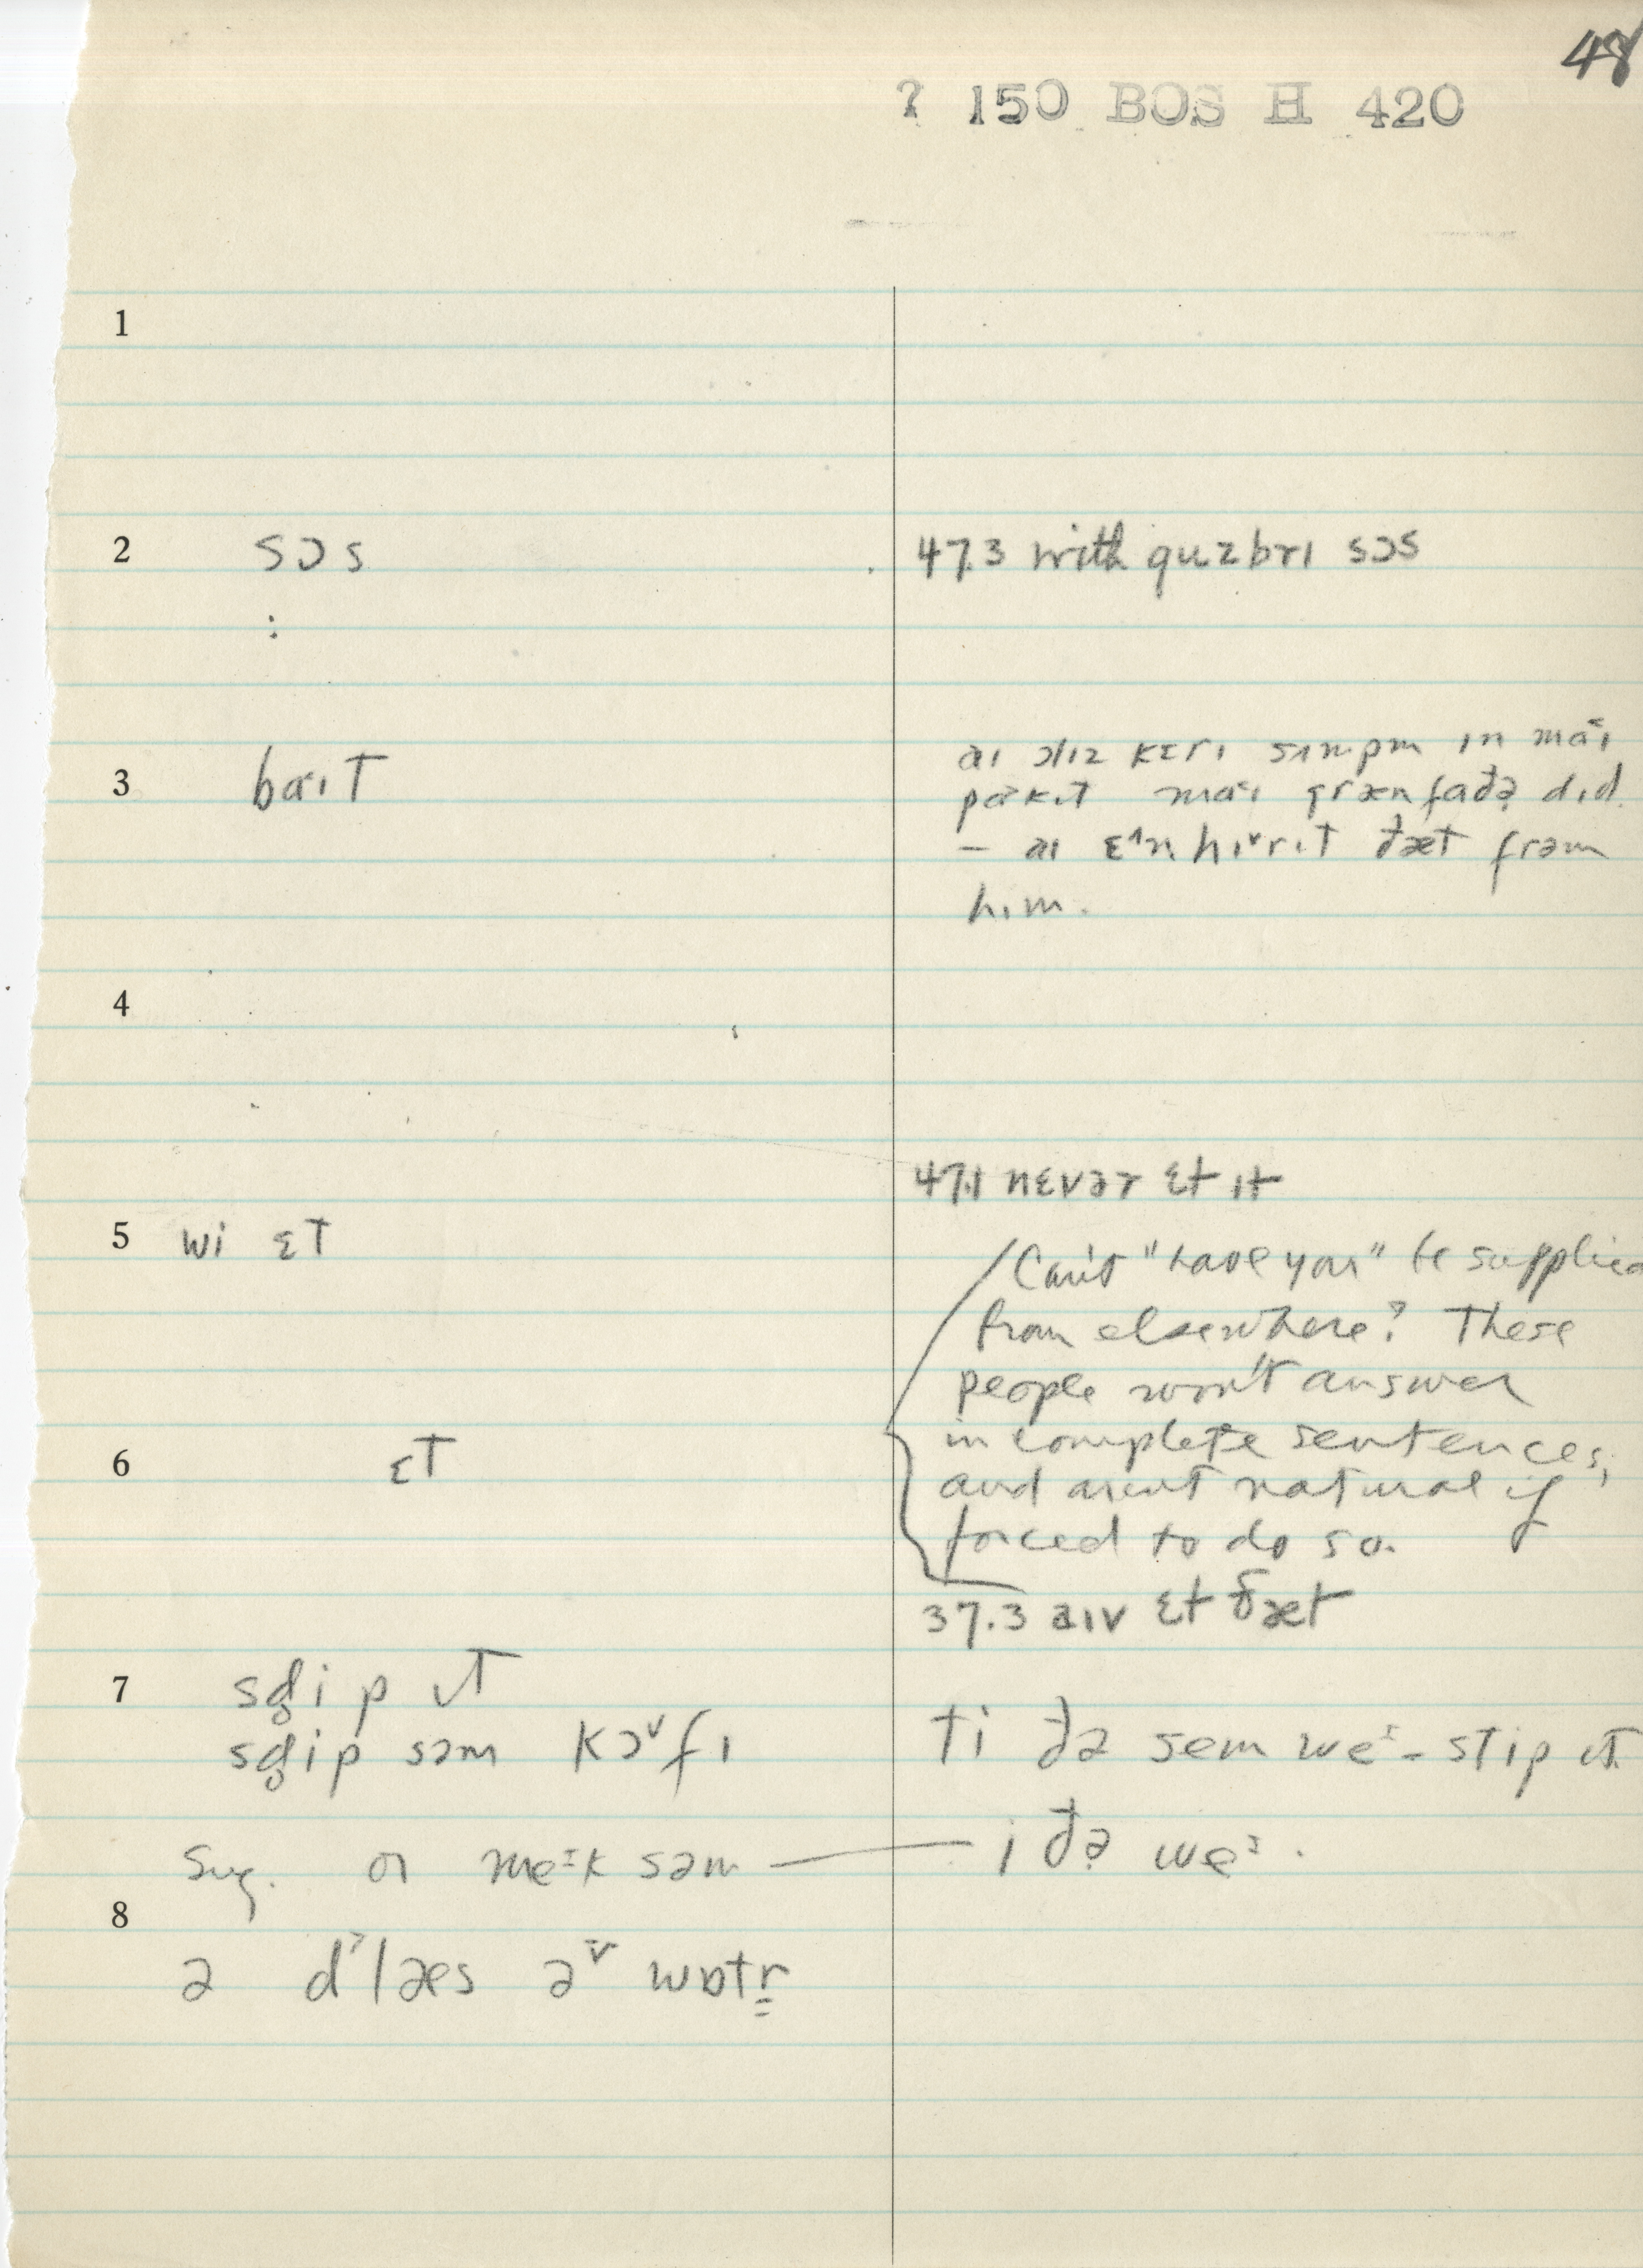 48
? 150 BOS H 420
1
2 sɔs 47.3 with guzbrɪ sɔs
:
3 baɪt aɪ ɔlɪz kɛrɪ sʌmpm ɪn maɪ
pakɪt maɪ grænfađə dɪd.
— aɪ ɛ^n hɪ˅rɪt đæt frəm
hɪm.
4
47.1 nɛvər ɛt ɪt
5 wi ɛt
Can't "have you" be supplied
from elsewhere? These
people won't answer
6 ɛt in complete sentences,
and aren't natural if
forced to do so.
37.3 aɪv ɛt ðæt
7 sd̥ip ɪt
sd̥ip səm kɔ˅fɪ ti đə sem we^ɪ - stip ɪt.
sug. or me^ɪk səm — i đə we^ɪ.
8
ə d^ɔlæs ə^v wɒtr̳